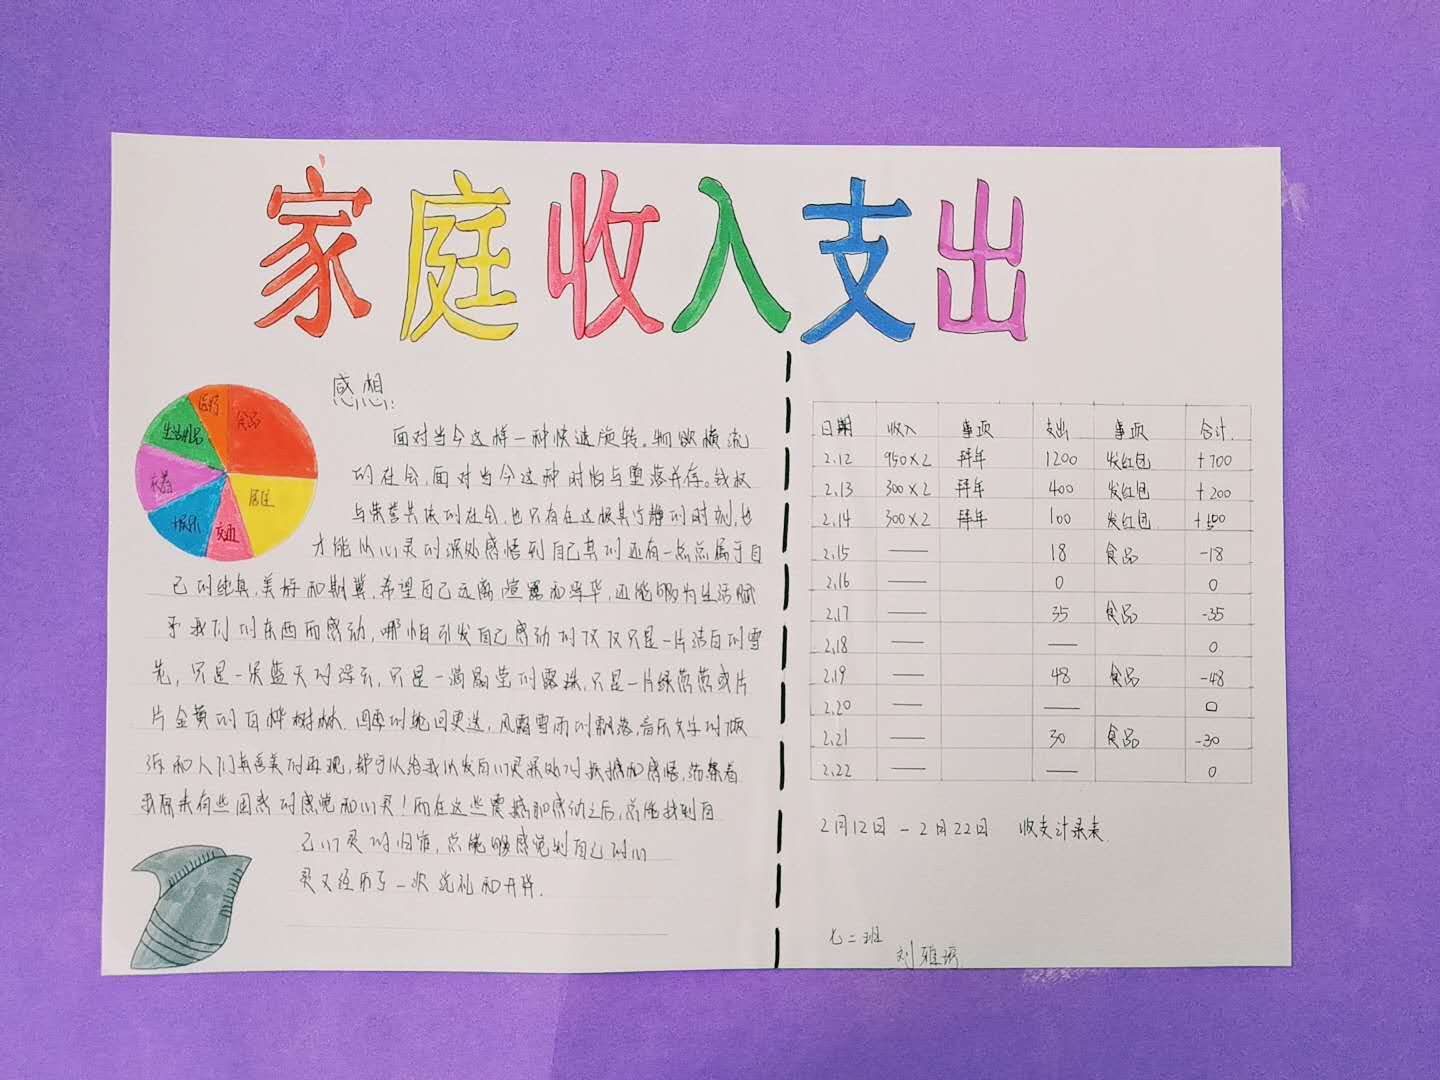 家庭收入支出
医疗
食品
生活用品
居住
娱乐
感想:
面对当今这样一种快速旋转。物欲横流
的社会,面对当今这种时尚与堕落并存。钱权
与荣誉共流的社会,也只有在这极其宁静的时刻,也
才能从心灵的深处感悟到自己真的还有一点点属于自
己的纯真,美好和期冀,希望自己远离喧嚣和浮华,还能够为生活赋
予我们的东西而感动,哪怕引发自己感动的仅仅只是一片洁白的雪
花,只是一朵蓝天的浮云,只是一滴晶莹的露珠,只是一片绿茵茵或片
片金黄的白桦树林.四季的轮回更迭,风霜雪雨的飘落,音乐文字的倾
诉和人们真善美的再现,都可以给我以发自心灵深处的震撼和感悟,荡漾着
我原来有些困惑的感觉和心灵!而在这些震撼和感动之后,总能找到自
己心灵的归宿,总能够感觉到自己的心
灵又经历了一次洗礼和升华.
日期 收入 事项 支出 事项 合计.
2.12 950×2 拜年 1200 发红包 +700
2.13 300×2 拜年 400 发红包 +200
2.14 300×2 拜年 100 发红包 +500
2.15 — 18 食品 -18
2.16 — 0 0
2.17 — 35 食品 -35
2.18 — — 0
2.19 — 48 食品 -48
2.20 — — 0
2.21 — 30 食品 -30
2.22 — — 0
2月12日-2月22日 收支计录表.
七二班
刘雅